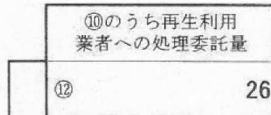 ⑩のうち再生利用
業者への処理委託量
⑫ 26